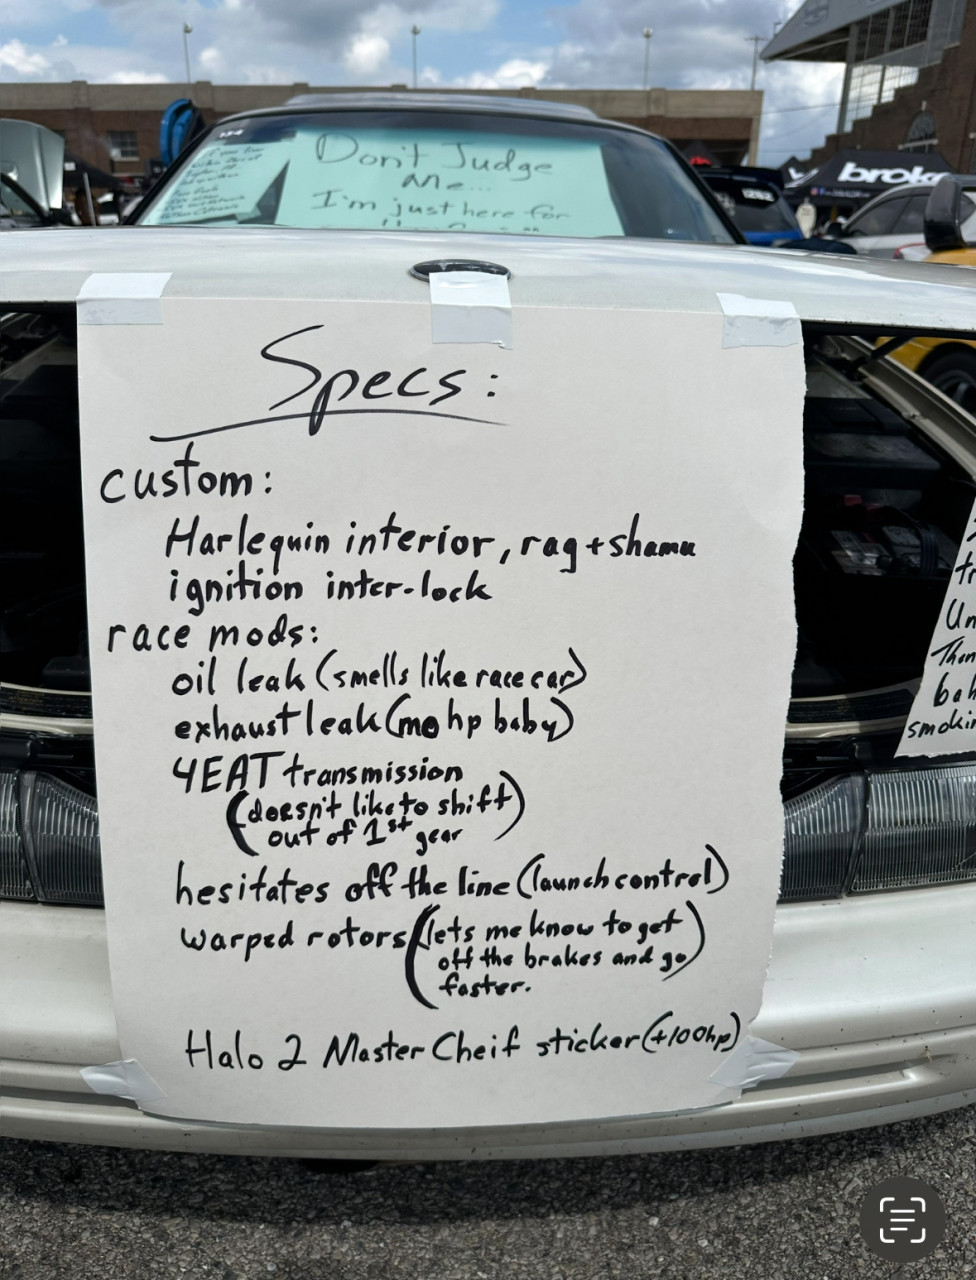 Don't Judge
me...
I'm just here for
brok
Specs:
custom:
Harlequin interior, rag+shamu
ignition inter-lock
race mods:
oil leak (smells like race car)
exhaust leak (mo hp baby)
4EAT transmission
(doesn't like to shift
out of 1st gear)
hesitates off the line (launch control)
warped rotors (lets me know to get
off the brakes and go
faster.)
Halo 2 Master Cheif sticker (+100hp)
tr
Un
bah
smokin